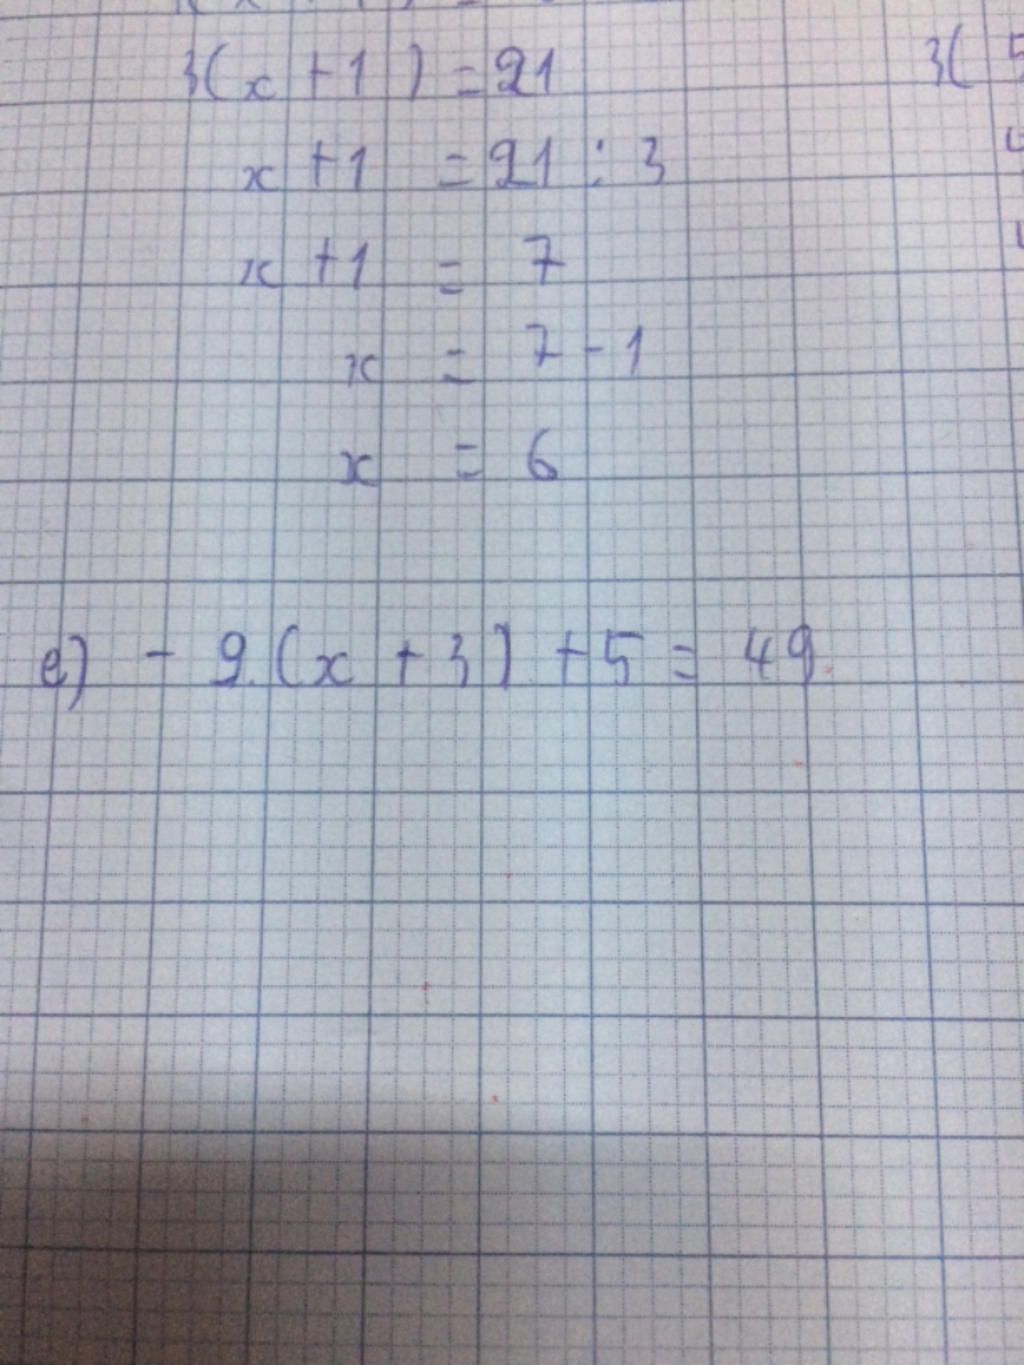 3(x+1) = 21
3(
x+1 = 21 : 3
x+1 = 7
x = 7-1
x = 6
e) - 9.(x+3) + 5 = 49